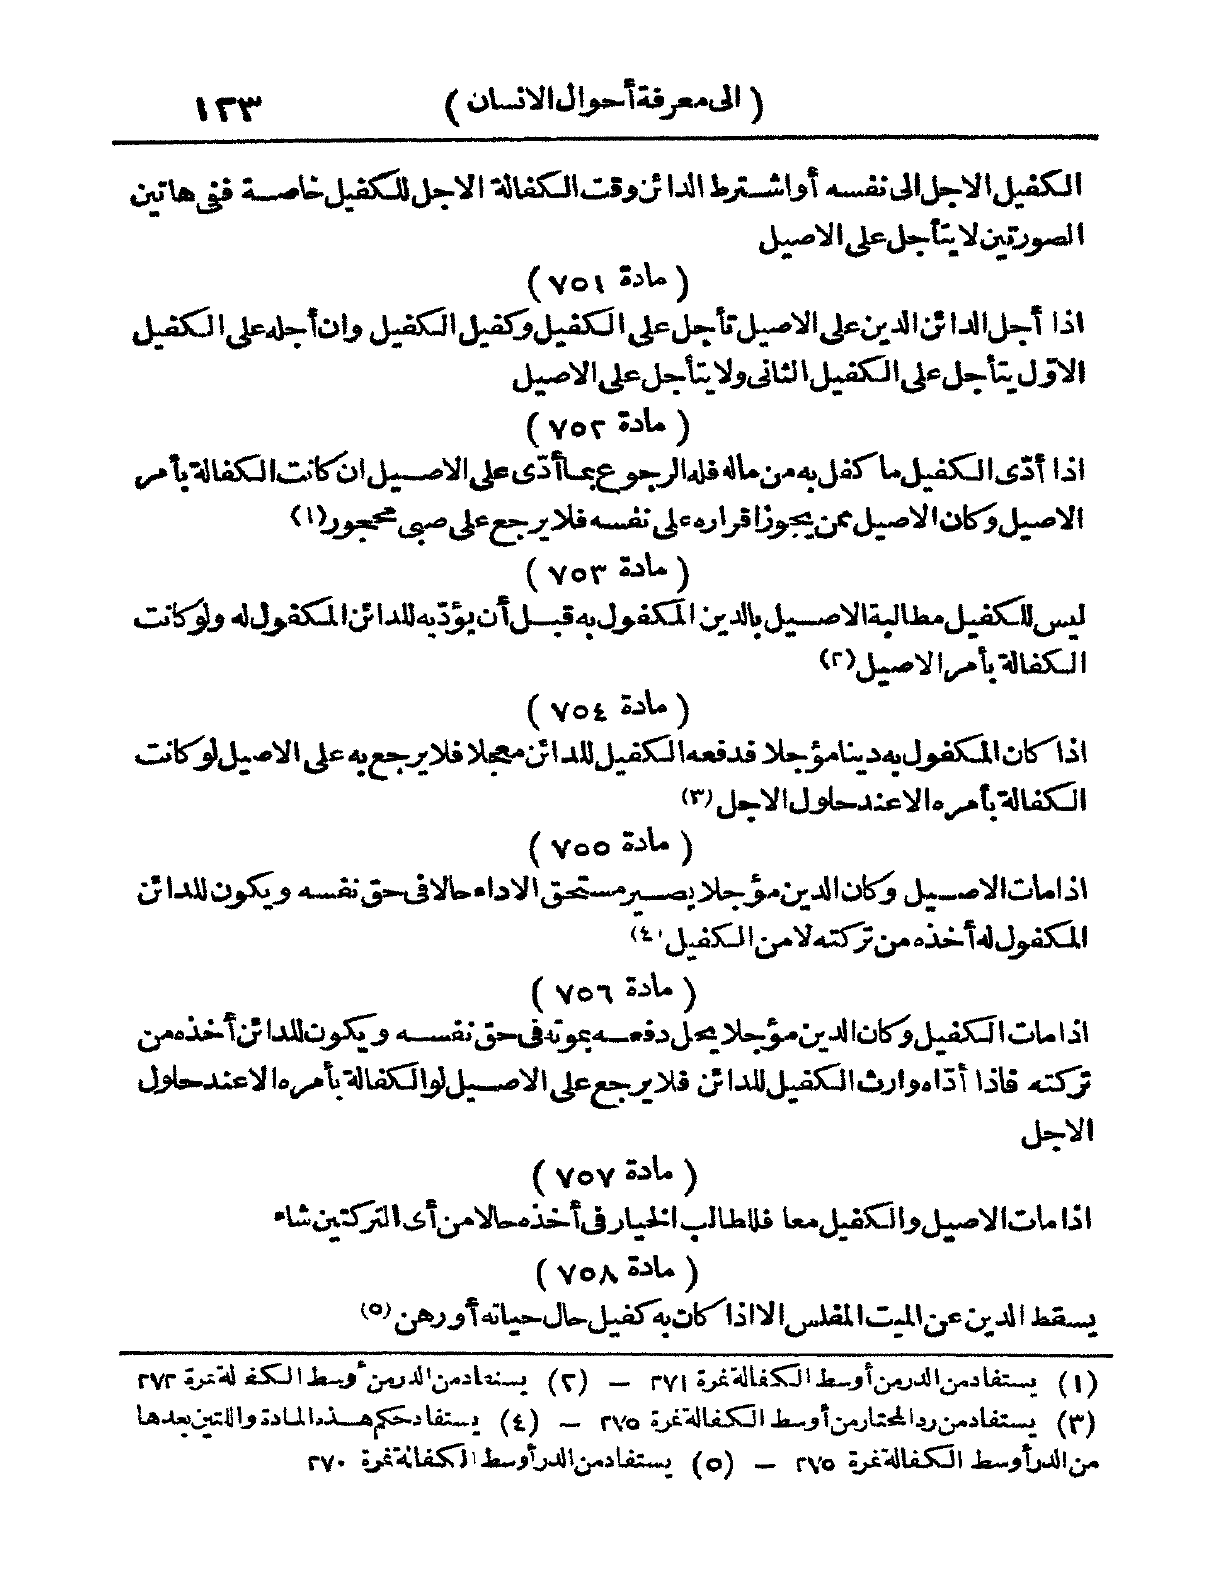 ( الى معرفة أحوال الانسان ) ١٢٣
الكفيل الاجل الى نفسه أو اشترط الدائن وقت الكفالة الاجل للكفيل خاصة ففى هاتين
الصورتين لا يتأجل على الاصيل
( مادة ٧٥١ )
اذا أجل الدائن الدين على الاصيل تأجل على الكفيل وكفيل الكفيل وان أجله على الكفيل
الاوّل يتأجل على الكفيل الثانى ولا يتأجل على الاصيل
( مادة ٧٥٢ )
اذا أدّى الكفيل ما كفل به من ماله فله الرجوع بما أدّى على الاصيل ان كانت الكفالة بأمر
الاصيل وكان الاصيل ممن يجوز اقراره على نفسه فلا يرجع على صبى محجور (١)
( مادة ٧٥٣ )
ليس للكفيل مطالبة الاصيل بالدين المكفول به قبل أن يؤدّيه للدائن المكفول له ولو كانت
الكفالة بأمر الاصيل (٢)
( مادة ٧٥٤ )
اذا كان المكفول به دينا مؤجلا فدفعه الكفيل للدائن معجلا فلا يرجع به على الاصيل لو كانت
الكفالة بأمره الا عند حلول الاجل (٣)
( مادة ٧٥٥ )
اذا مات الاصيل وكان الدين مؤجلا يصير مستحق الاداء حالا فى حق نفسه ويكون للدائن
المكفول له أخذه من تركته لا من الكفيل (٤)
( مادة ٧٥٦ )
اذا مات الكفيل وكان الدين مؤجلا يحل دفعه بموته فى حق نفسه ويكون للدائن أخذه من
تركته فاذا أدّاه وارث الكفيل للدائن فلا يرجع على الاصيل لو الكفالة بأمره الا عند حلول
الاجل
( مادة ٧٥٧ )
اذا مات الاصيل والكفيل معا فللطالب الخيار فى أخذه حالا من أى التركتين شاء
( مادة ٧٥٨ )
يسقط الدين عن الميت المفلس الا اذا كان به كفيل حال حياته أو رهن (٥)
(١) يستفاد من الدر من أوسط الكفالة نمرة ٢٧١ — (٢) يستفاد من الدر من أوسط الكفالة نمرة ٢٧٢
(٣) يستفاد من رد المحتار من أوسط الكفالة نمرة ٢٧٥ — (٤) يستفاد حكم هذه المادة واللتين بعدها
من الدر أوسط الكفالة نمرة ٢٧٥ — (٥) يستفاد من الدر أوسط الكفالة نمرة ٢٧٠